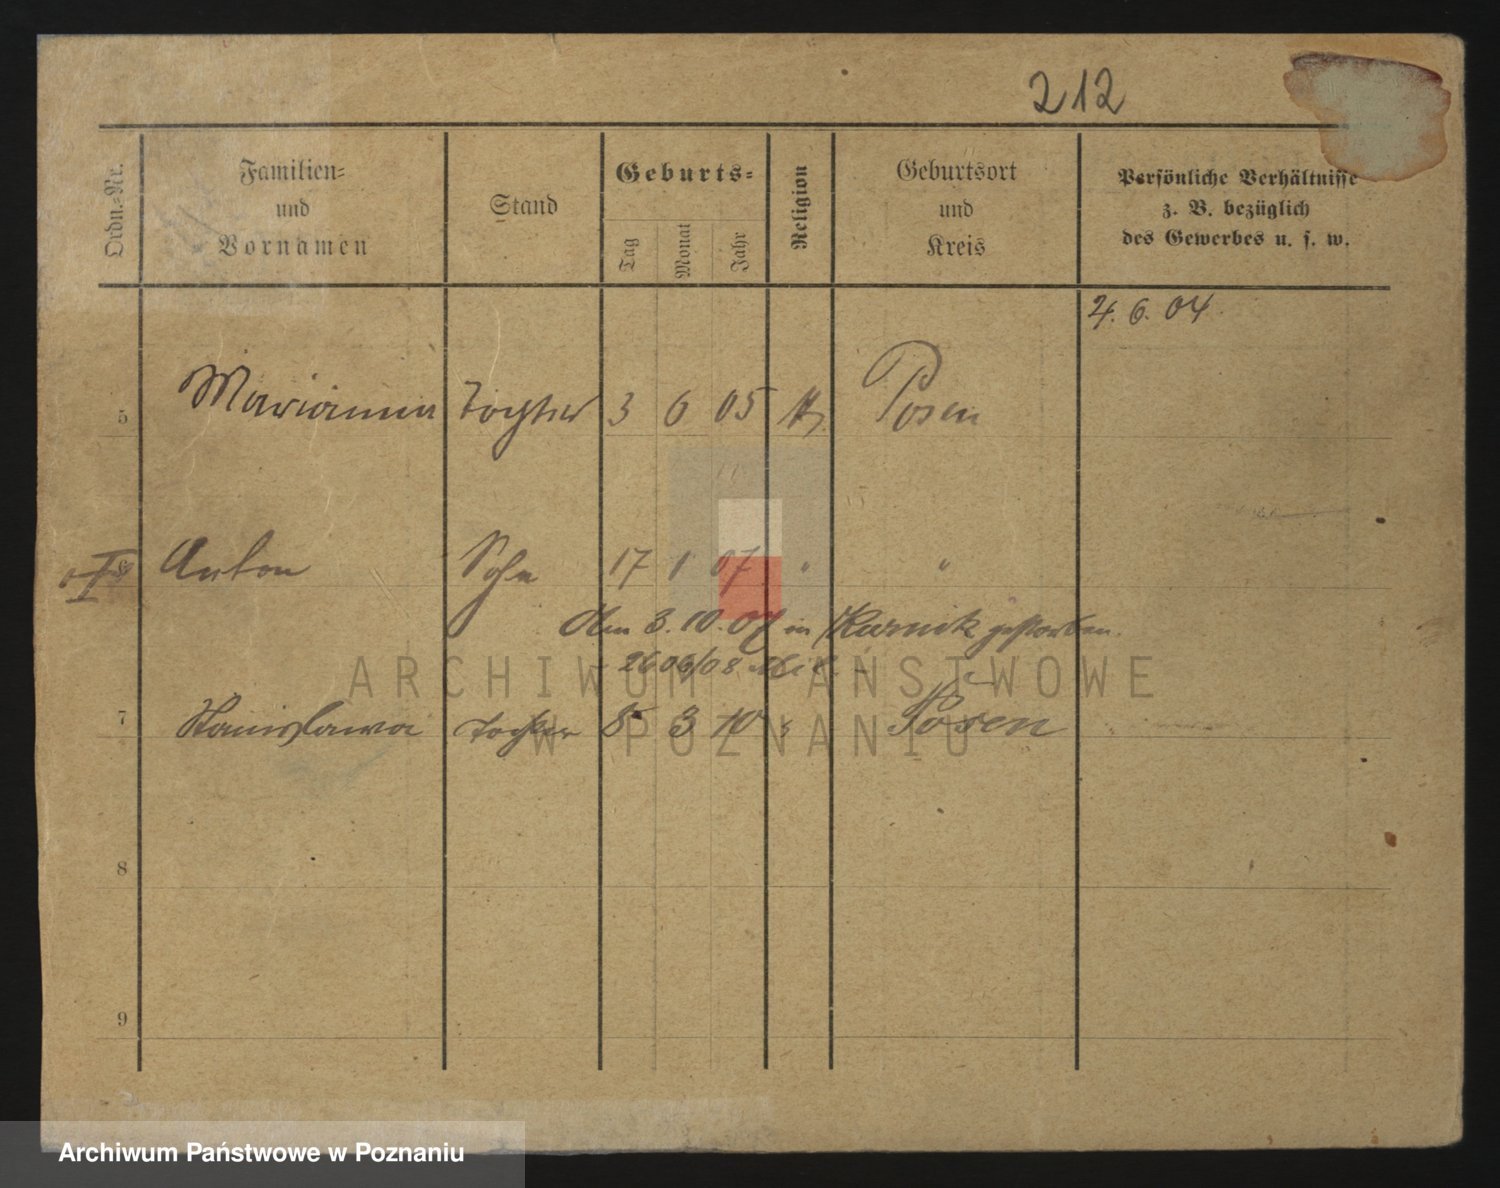 212
Ordn.-Nr.
Familien-
und
Vornamen
Stand
Geburts-
Tag
Monat
Jahr
Religion
Geburtsort
und
Kreis
Persönliche Verhältnisse
z. B. bezüglich
des Gewerbes u. s. w.
4. 6. 04
5 Marianna Tochter 3 6 05 Posen
Anton Sohn 17 1 07 " "
Am 3. 10. 07 in Kurnik gestorben.
26 06/08
7 Stanislawa Tochter 8 3 10 Posen
8
9
ARCHIWUM PAŃSTWOWE
W POZNANIU
Archiwum Państwowe w Poznaniu